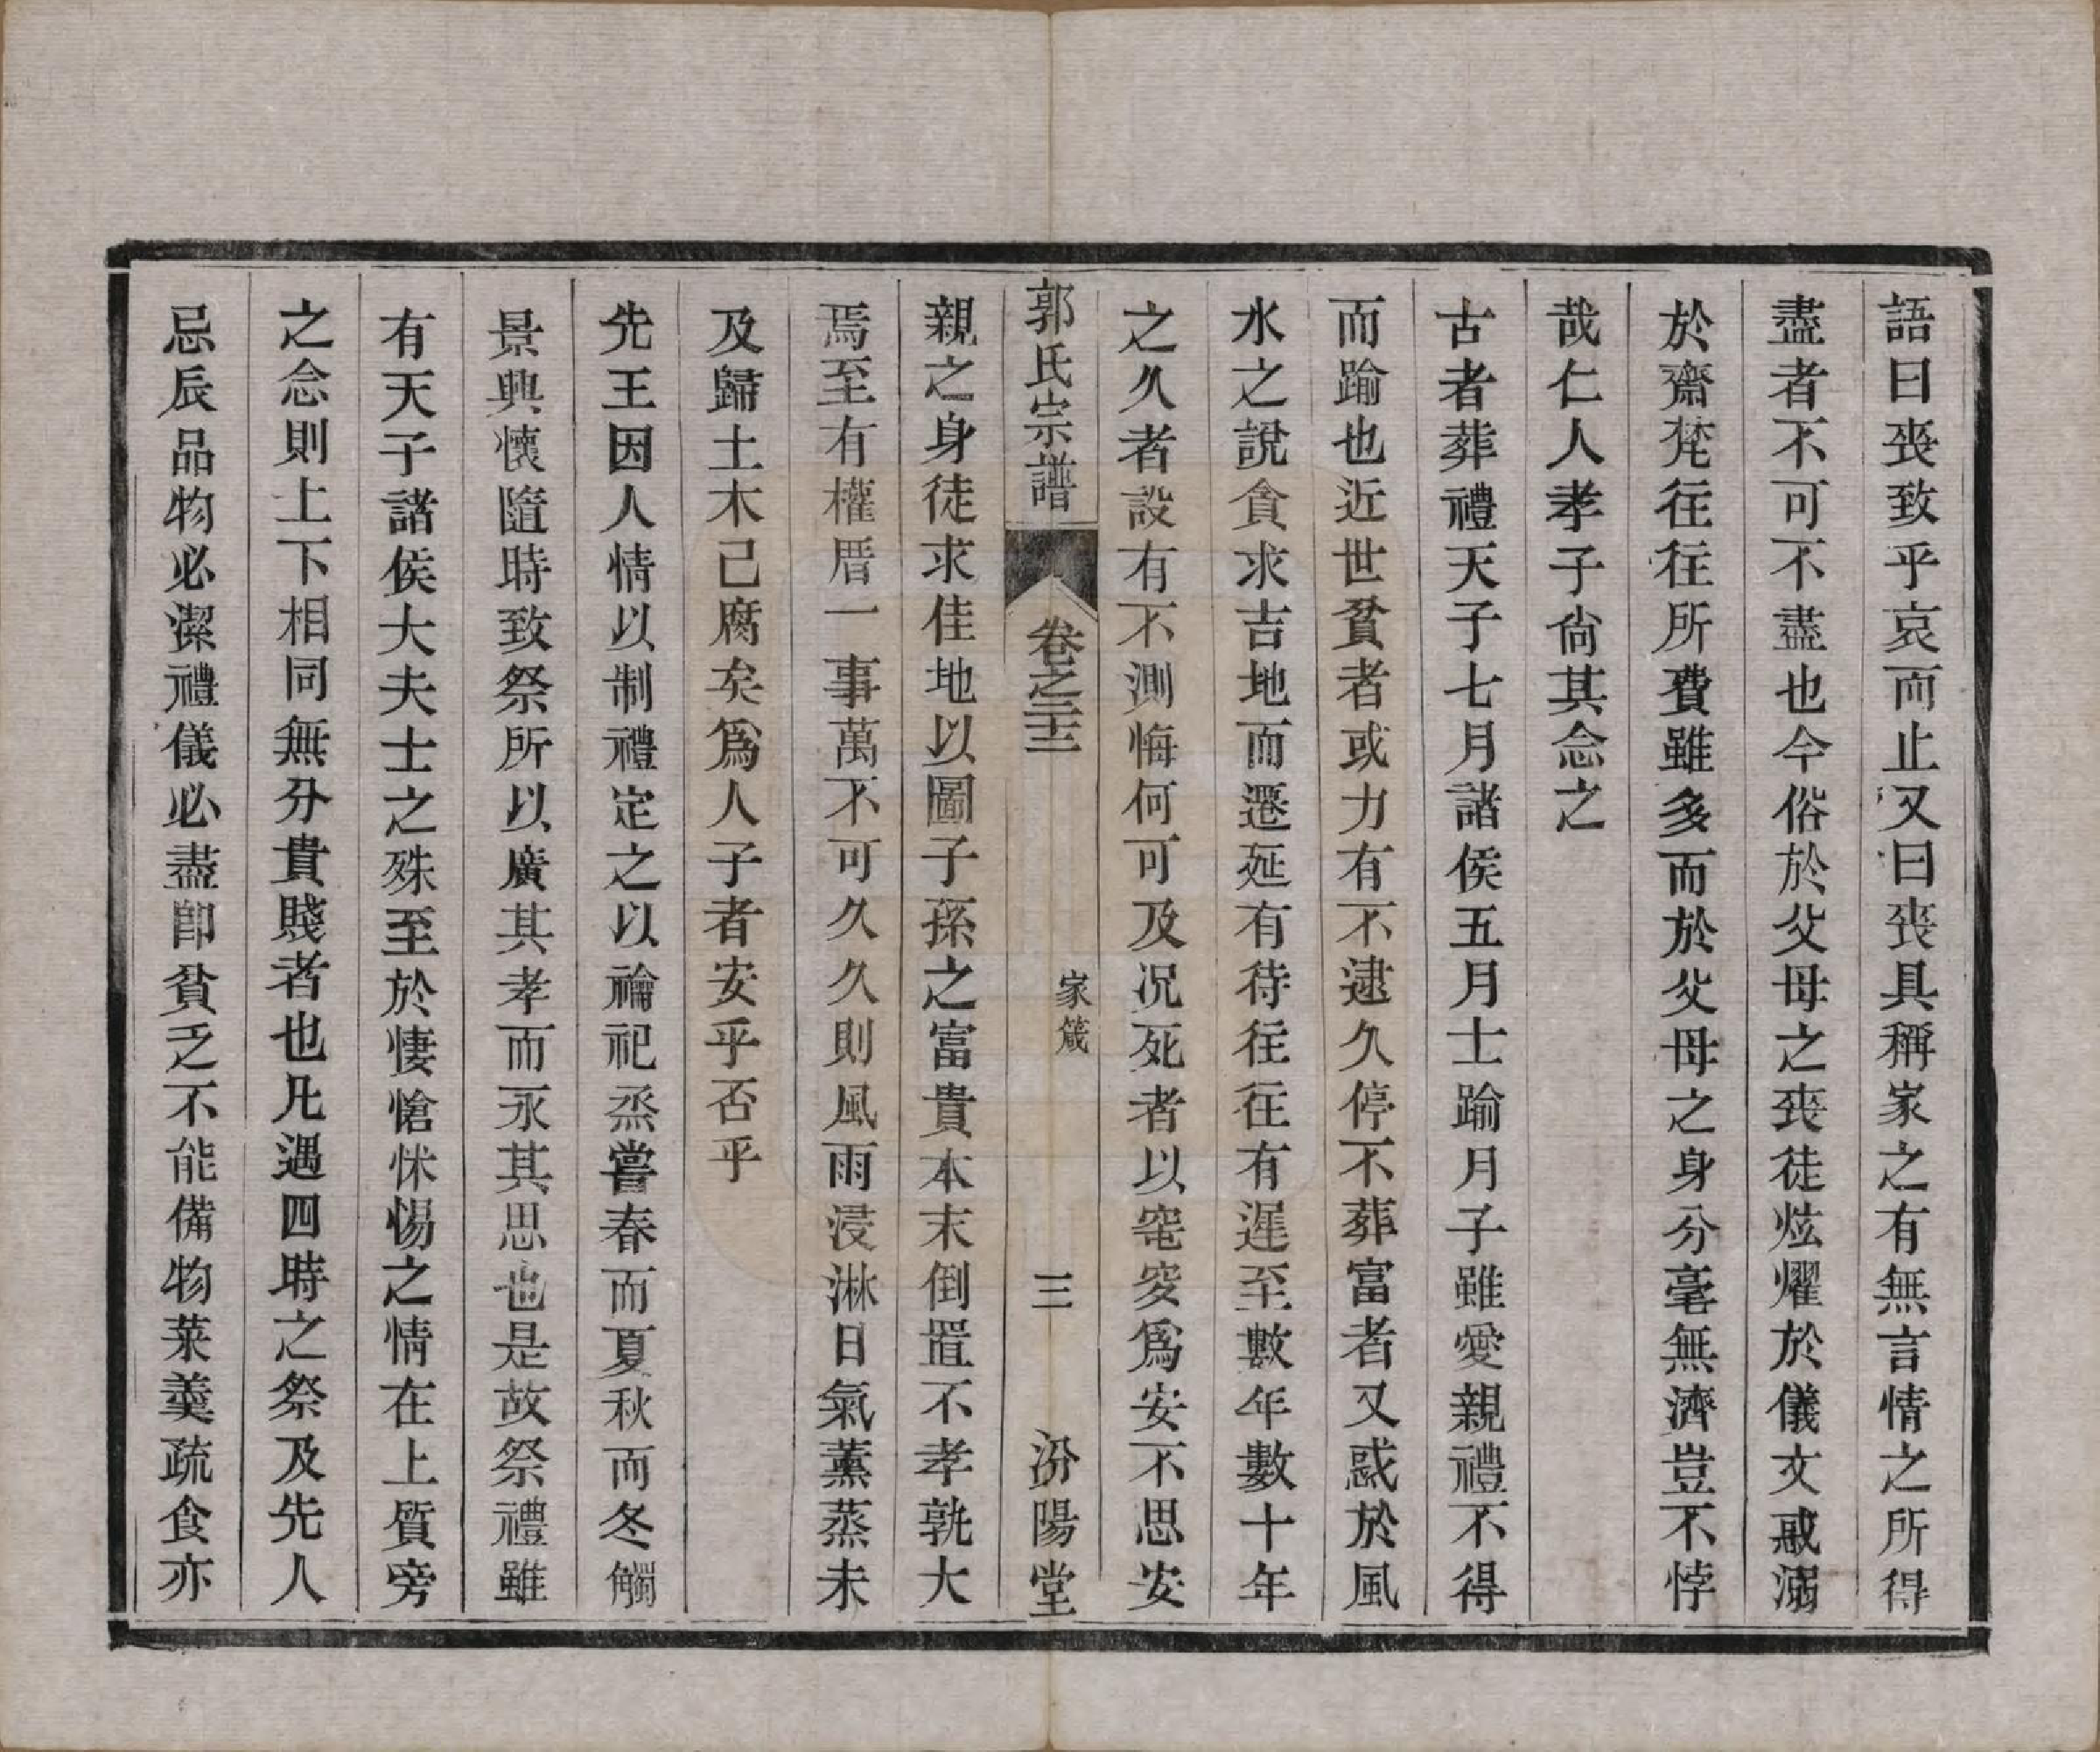 語曰喪致乎哀而止又曰喪具稱家之有無言情之所得
盡者不可不盡也今俗於父母之喪徒炫燿於儀文或溺
於齋梵往往所費雖多而於父母之身分毫無濟豈不悖
哉仁人孝子尙其念之
古者葬禮天子七月諸侯五月士踰月子雖愛親禮不得
而踰也近世貧者或力有不逮久停不葬富者又惑於風
水之說貪求吉地而遷延有待往往有遲至數年數十年
之久者設有不測悔何可及况死者以窀穸爲安不思安
郭氏宗譜
卷之二十三
家箴
三
汾陽堂
親之身徒求佳地以圖子孫之富貴本末倒置不孝孰大
焉至有權厝一事萬不可久久則風雨浸淋日氣薰蒸未
及歸土木已腐矣爲人子者安乎否乎
先王因人情以制禮定之以禴祀烝嘗春而夏秋而冬觸
景興懷隨時致祭所以廣其孝而永其思也是故祭禮雖
有天子諸侯大夫士之殊至於悽愴怵惕之情在上質旁
之念則上下相同無分貴賤者也凡遇四時之祭及先人
忌辰品物必潔禮儀必盡卽貧乏不能備物菜羹疏食亦